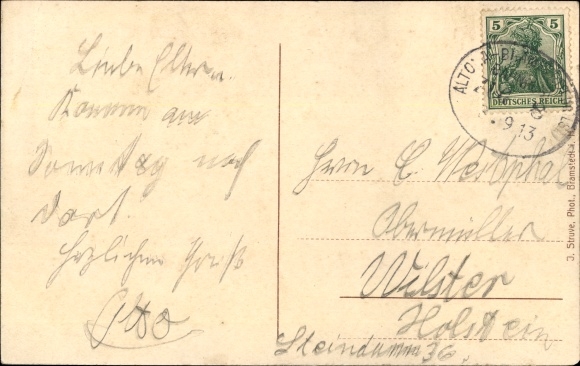 Liebe Eltern.
Komme am
Sonntag nach
dort.
Herzlichen Gruß
Otto
5
DEUTSCHES REICH
9.13
Herrn C. Westphal
Obermüller
Wilster
Holstein
Steindamm 36.
J. Struve, Phot., Bramstedt i.